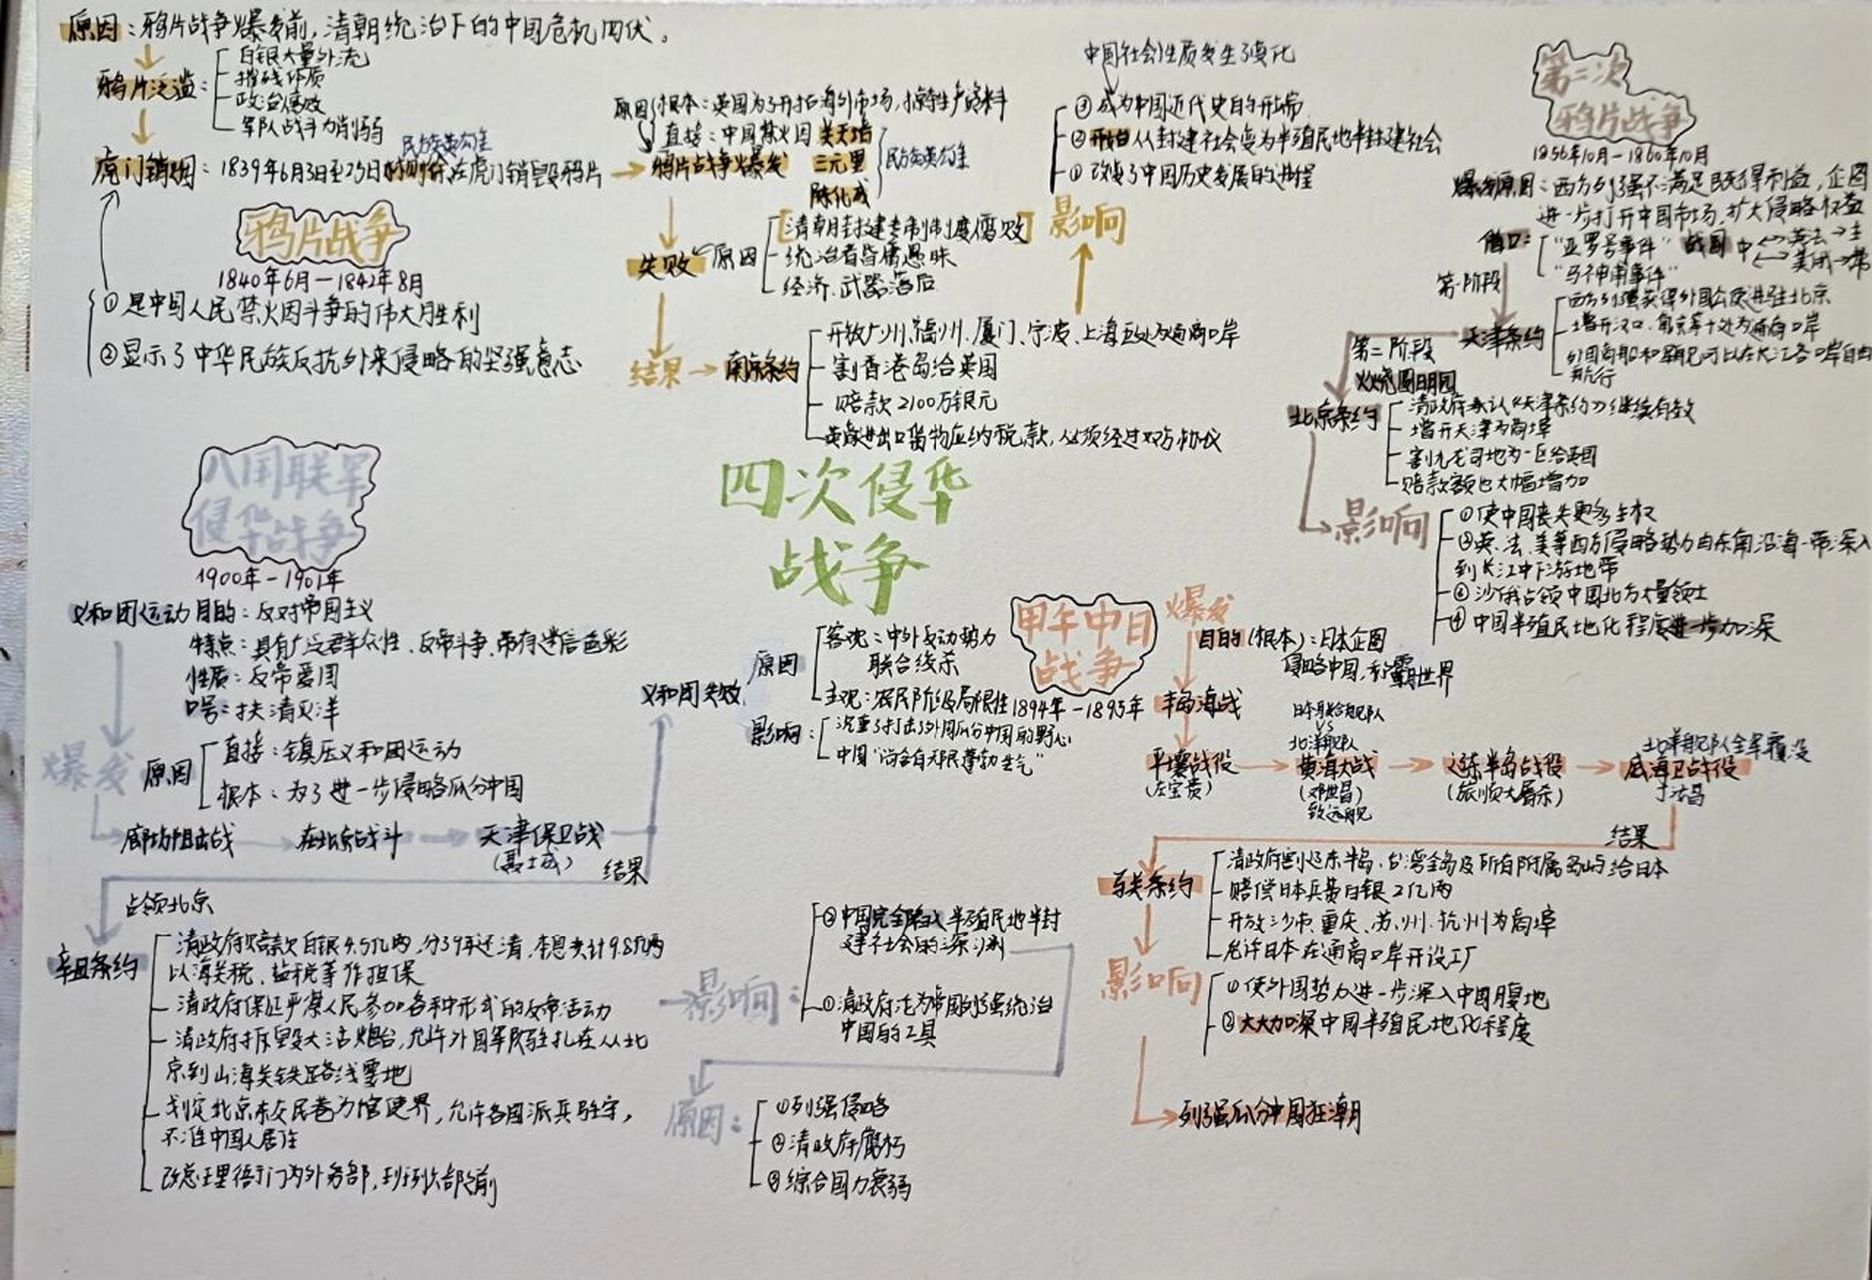 原因：鸦片战争爆发前，清朝统治下的中国危机四伏。
鸦片泛滥：
白银大量外流
摧残体质
政治腐败
军队战斗力削弱
民族英雄
虎门销烟：1839年6月3日至25日林则徐在虎门销毁鸦片
鸦片战争
1840年6月—1842年8月
①是中国人民禁烟斗争的伟大胜利
②显示了中华民族反抗外来侵略的坚强意志
原因
根本：英国为了开拓海外市场，掠夺生产资料
直接：中国禁烟
鸦片战争爆发
关天培
三元里
陈化成
民族英雄
失败
原因
清朝封建专制制度腐败
统治者昏庸愚昧
经济、武器落后
结果
南京条约
开放广州、福州、厦门、宁波、上海五处为通商口岸
割香港岛给英国
赔款2100万银元
英商进出口货物应纳税款，必须经过双方协议
影响
中国社会性质发生了变化
③成为中国近代史的开端
②开始从封建社会变为半殖民地半封建社会
①改变了中国历史发展的进程
第二次
鸦片战争
1856年10月—1860年10月
爆发原因：西方列强不满足既得利益，企图
进一步打开中国市场，扩大侵略权益
借口：
"亚罗号事件"
"马神甫事件"
战国
中
英法→主
美俄→帮
第一阶段
天津条约
西方列强获得外国公使进驻北京
增开汉口、南京等十处为通商口岸
外国商船和军舰可以在长江各口岸自由
航行
第二阶段
火烧圆明园
北京条约
清政府承认《天津条约》继续有效
增开天津为商埠
割九龙司地方一区给英国
赔款额也大幅增加
影响
①使中国丧失更多主权
②英、法、美等西方侵略势力由东南沿海一带深入
到长江中下游地带
③沙俄占领中国北方大量领土
④中国半殖民地化程度进一步加深
四次侵华
战争
八国联军
侵华战争
1900年—1901年
义和团运动
目的：反对帝国主义
特点：具有广泛群众性、反帝斗争、带有迷信色彩
性质：反帝爱国
口号：扶清灭洋
爆发
原因
直接：镇压义和团运动
根本：为了进一步侵略瓜分中国
廊坊阻击战
在北京战斗
天津保卫战
（聂士成）
结果
义和团失败
原因
客观：中外反动势力
联合绞杀
主观：农民阶级局限性
影响：
沉重打击了外国瓜分中国的野心
中国"尚含有无限蓬勃生气"
占领北京
辛丑条约
清政府赔款白银4.5亿两，分39年还清，本息共计9.8亿两
以海关税、盐税等作担保
清政府保证严禁人民参加各种形式的反帝活动
清政府拆毁大沽炮台，允许外国军队驻扎在从北
京到山海关铁路线要地
划定北京东交民巷为馆使界，允许各国派兵驻守，
不准中国人居住
改总理衙门为外务部，班列六部之前
影响：
②中国完全陷入半殖民地半封
建社会的深渊
①清政府沦为帝国列强统治
中国的工具
原因：
①列强侵略
②清政府腐朽
③综合国力衰弱
甲午中日
战争
1894年—1895年
爆发
目的（根本）：日本企图
侵略中国，称霸世界
丰岛海战
平壤战役
（左宝贵）
日本联合舰队
VS
北洋舰队
黄海大战
（邓世昌）
致远舰
辽东半岛战役
（旅顺大屠杀）
北洋舰队全军覆没
威海卫战役
丁汝昌
结果
马关条约
清政府割辽东半岛、台湾全岛及所有附属岛屿给日本
赔偿日本兵费白银2亿两
开放沙市、重庆、苏州、杭州为商埠
允许日本在通商口岸开设工厂
影响
①使外国势力进一步深入中国腹地
②大大加深中国半殖民地化程度
列强瓜分中国狂潮